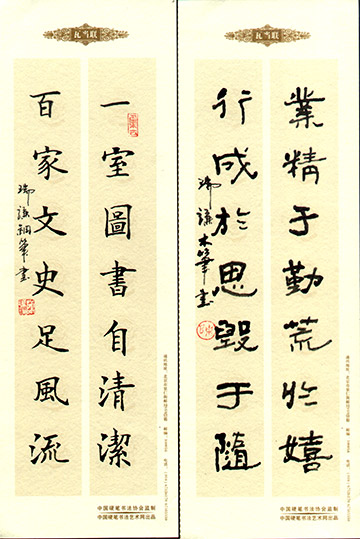 瓦当联
一室圖書自清潔
百家文史足風流
瑞謙鋼筆書
中国硬笔书法协会监制
中国硬笔书法艺术网出品
瓦当联
業精于勤荒於嬉
行成於思毀于隨
瑞謙木筆書
中国硬笔书法协会监制
中国硬笔书法艺术网出品